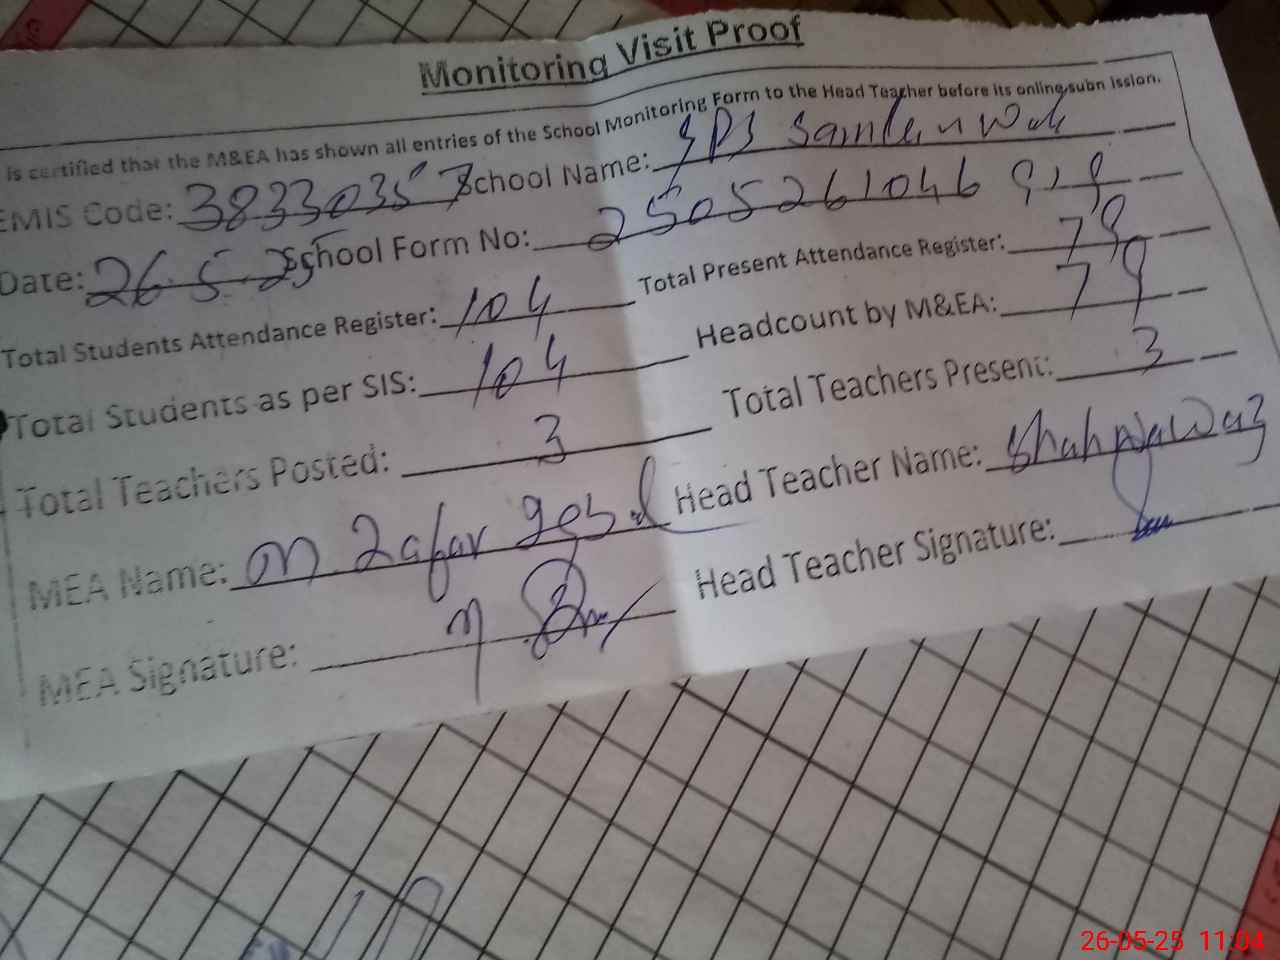 Monitoring Visit Proof
is certified that the M&EA has shown all entries of the School Monitoring Form to the Head Teacher before its online subn ission.
EMIS Code: 38330357 School Name: GPS
Date: 26-5-25 School Form No: 2505261046 919
Total Students Attendance Register: 104 Total Present Attendance Register: 79
Total Students as per SIS: 104 Headcount by M&EA: 79
Total Teachers Posted: 3 Total Teachers Present: 3
MEA Name: M. Zafar Head Teacher Name: Shah Nawaz
MEA Signature: Head Teacher Signature:
26-05-25 11:04